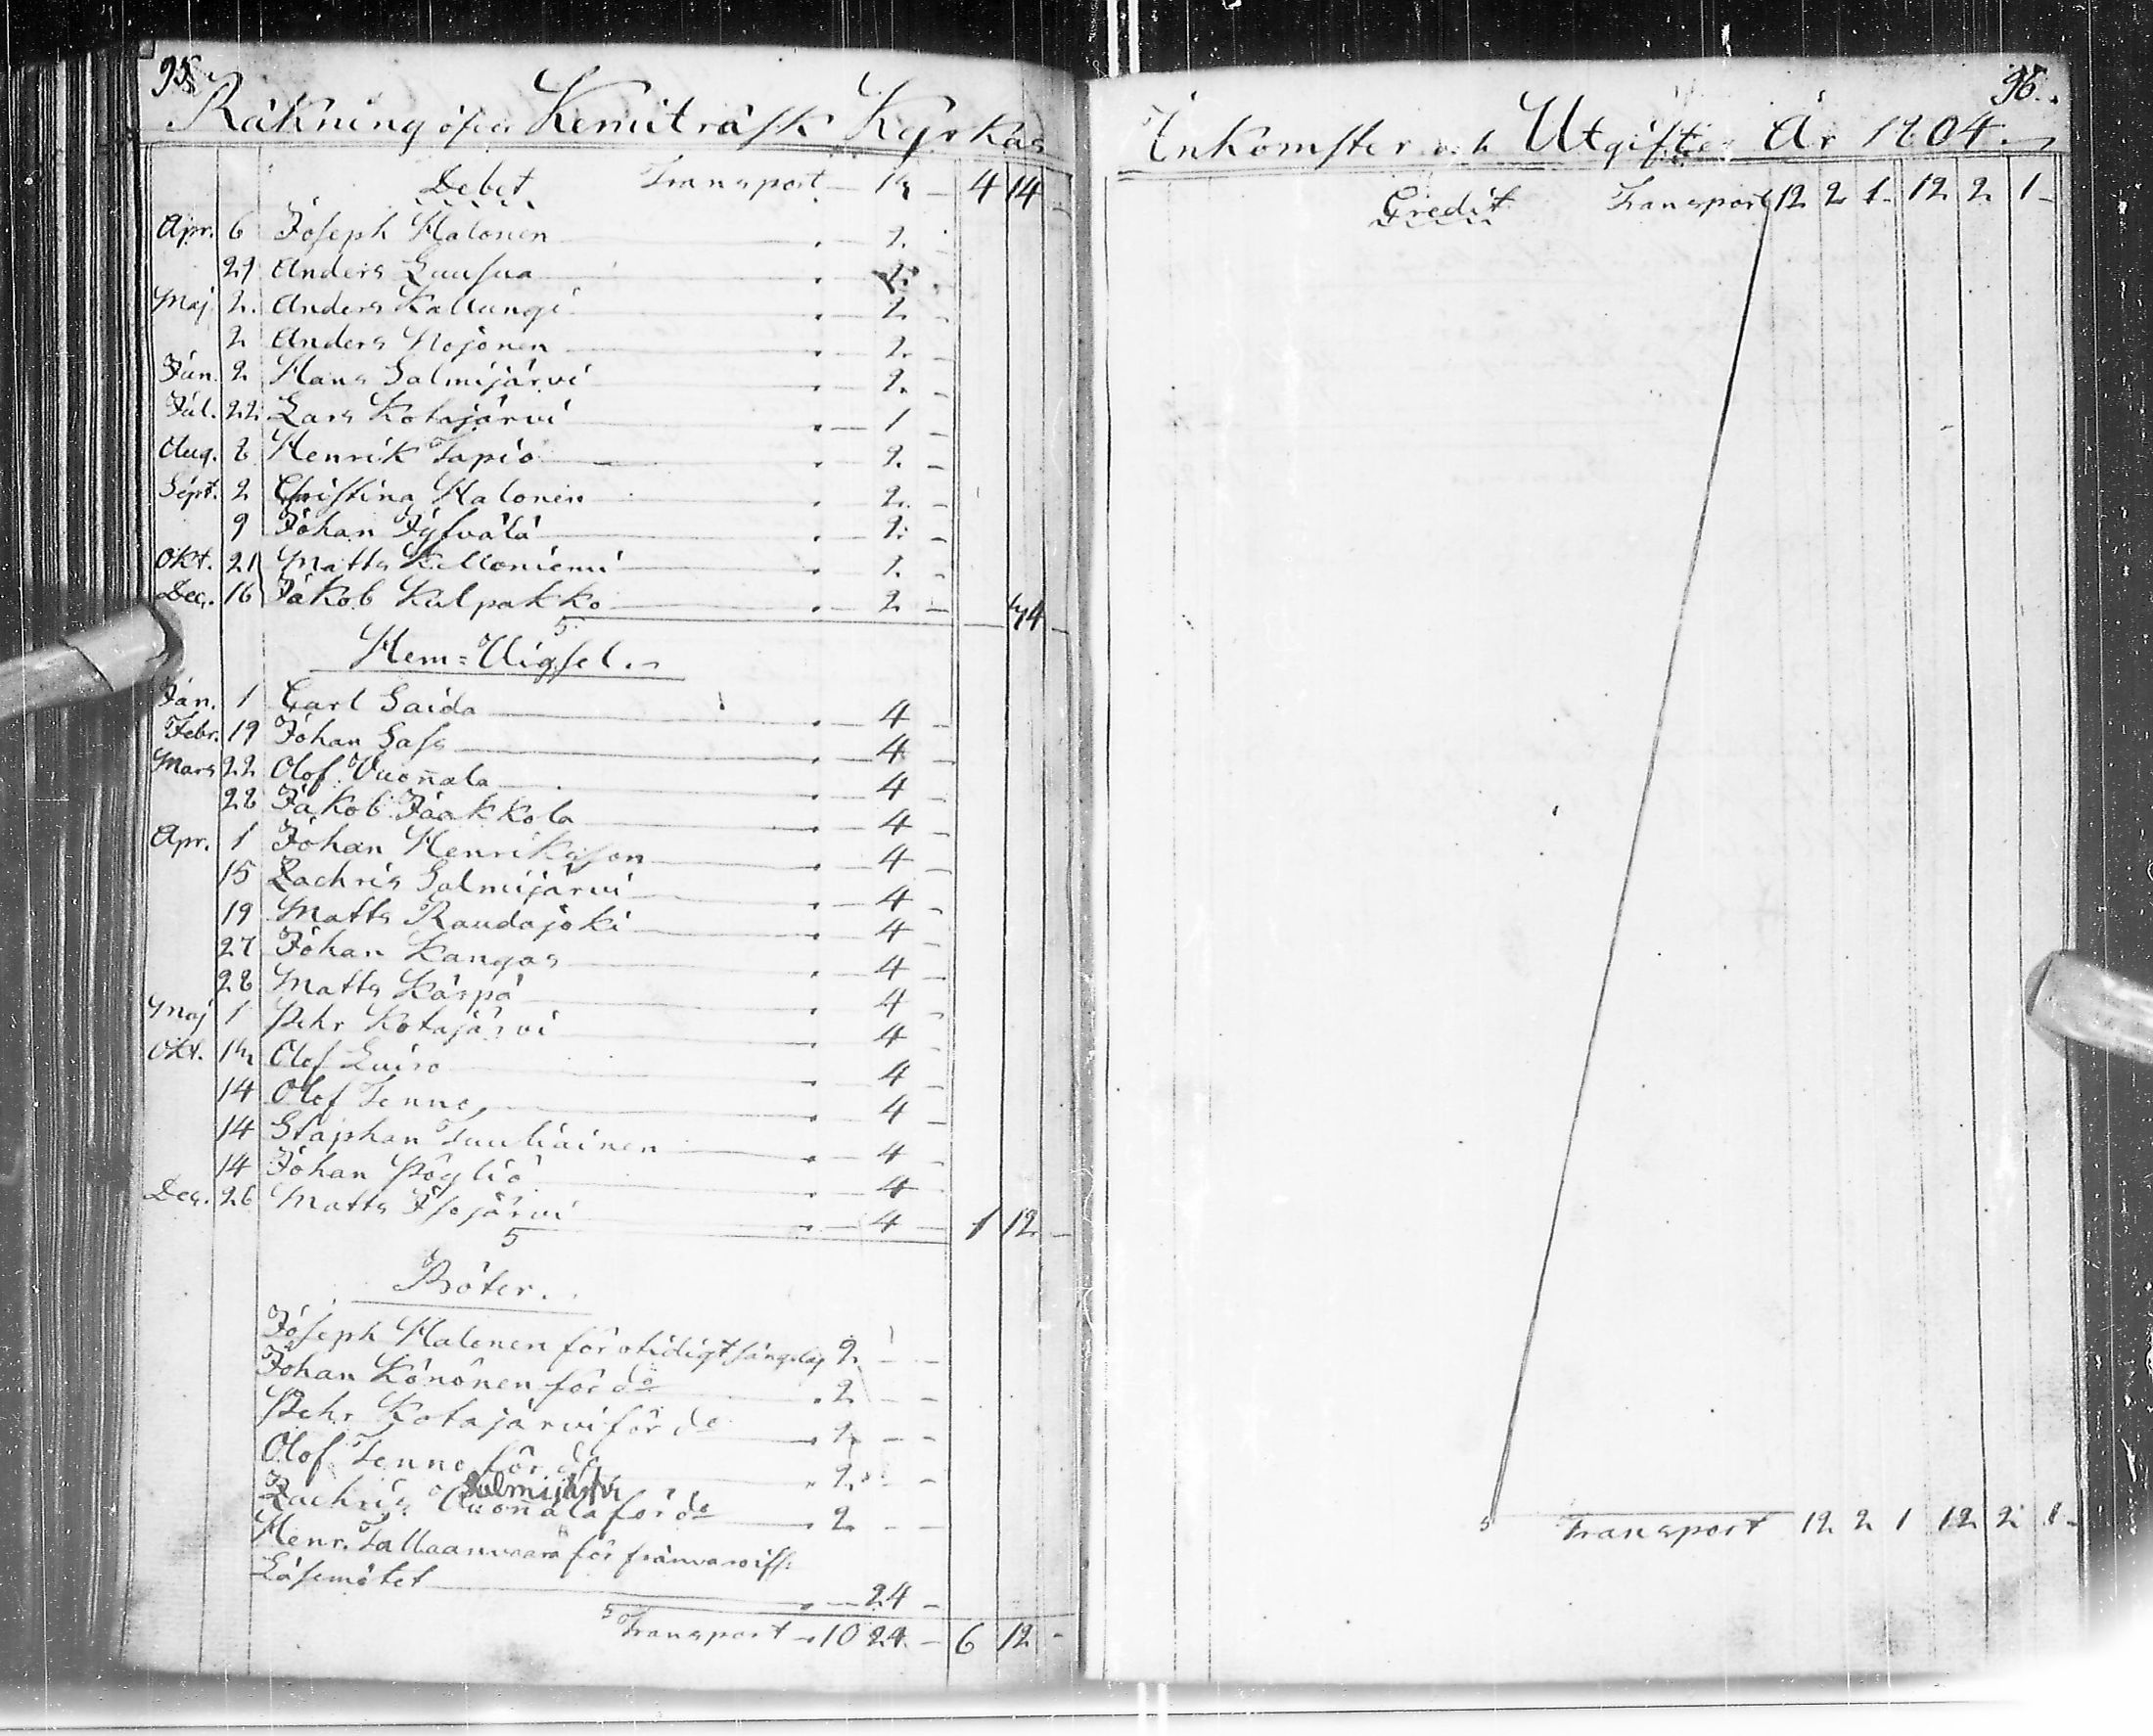 95.
Räkning öfver Kemiträsk Kyrkas
Debet Transport — 18 — 4 14 —
Apr. 6 Joseph Halonen . — 2. -
29 Anders Luusua . — 2. -
Maj 2. Anders Kallungi . — 2 -
2 Anders Nojonen . — 2. -
Jun. 2 Hans Salmijärvi . — 2. -
Jul. 22 Lars Kotajärvi . — 1 -
Aug. 8 Henrik Tapio . — 2. -
Sept. 2 Christina Halonen . — 2. -
9 Johan Jyfvälä . — 2. -
Okt. 21 Matts Kelloniemi . — 2. -
Dec. 16 Jakob Kulpakko . — 2 — — 44 —
Hem=Vigsel.
Jan. 1 Carl Saida . — 4 -
Febr. 19 Johan Sass . — 4 -
Mars 22 Olof Vuoñala . — 4 -
28 Jakob Jaakkola . — 4 -
Apr. 1 Johan Henriksson . — 4 -
15 Zachris Salmijärvi . — 4 -
19 Matts Raudajoki . — 4 -
27 Johan Kangas . — 4 -
28 Matts Käspä . — 4 -
Maj 1 Pehr Kotajärvi . — 4 -
Okt. Olof Luiro . — 4 -
14 Olof Tenno . — 4 -
14 Staphan Tuuliainen . — 4 -
14 Johan Pöyliö . — 4 -
Dec. 26 Matts Isojärvi . — 4 — 1 12 —
Böter.
Joseph Halonen för otidigt sängelag 2 — -
Johan Könönen för do . 2 — -
Pehr Kotajärvi för do . 2 — -
Olof Tenno för do . 2 — -
Salmijärvi
Zachris Vuoñala för do 2 — -
Henr. Tallaanvaara för frånvaro ifr:
Läsemötet . — 24 -
Transport — 10 24 — 6 12 -
96.
Inkomster och Utgifter År 1804.
Credit Transport 12 2 1 - 12 2 1 -
Transport 12 2 1 12 2 1 -